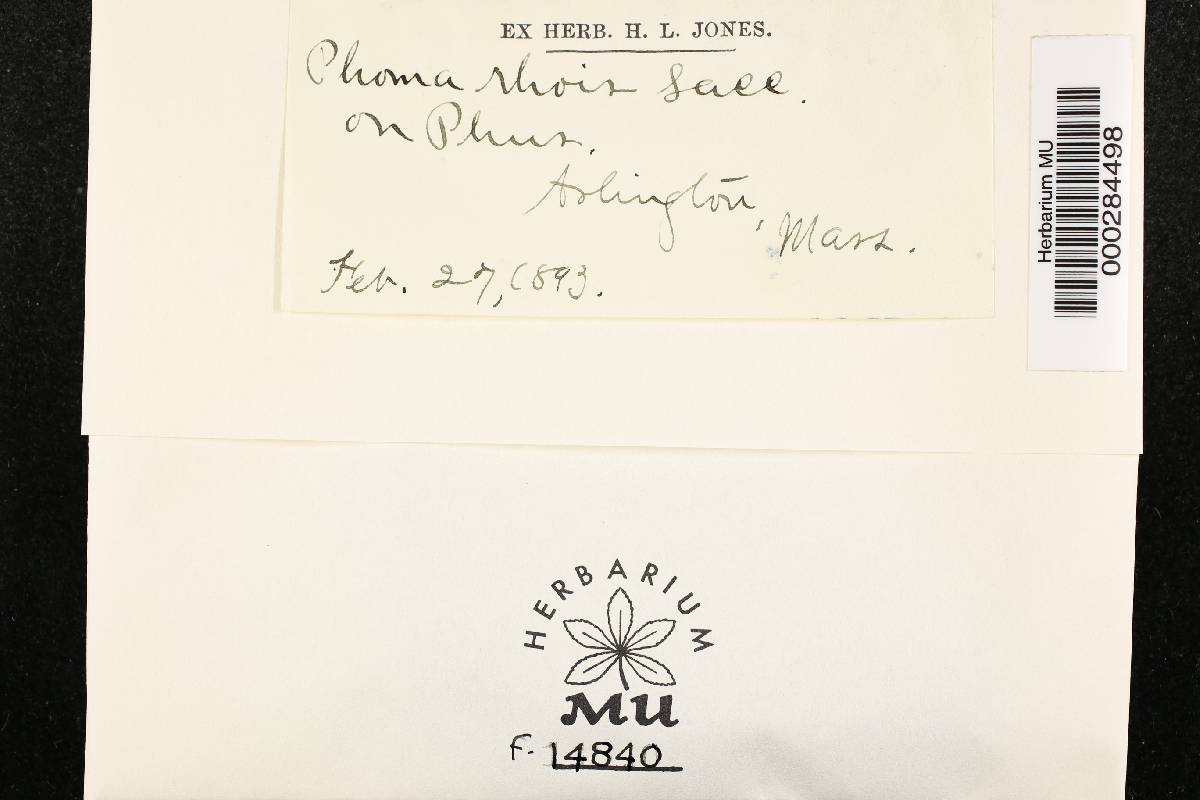 EX HERB. H. L. JONES.
Phoma rhois Sacc.
on Rhus.
Arlington,
Mass.
Feb. 27, 1893.
Herbarium MU
000284498
HERBARIUM
MU
F. 14840